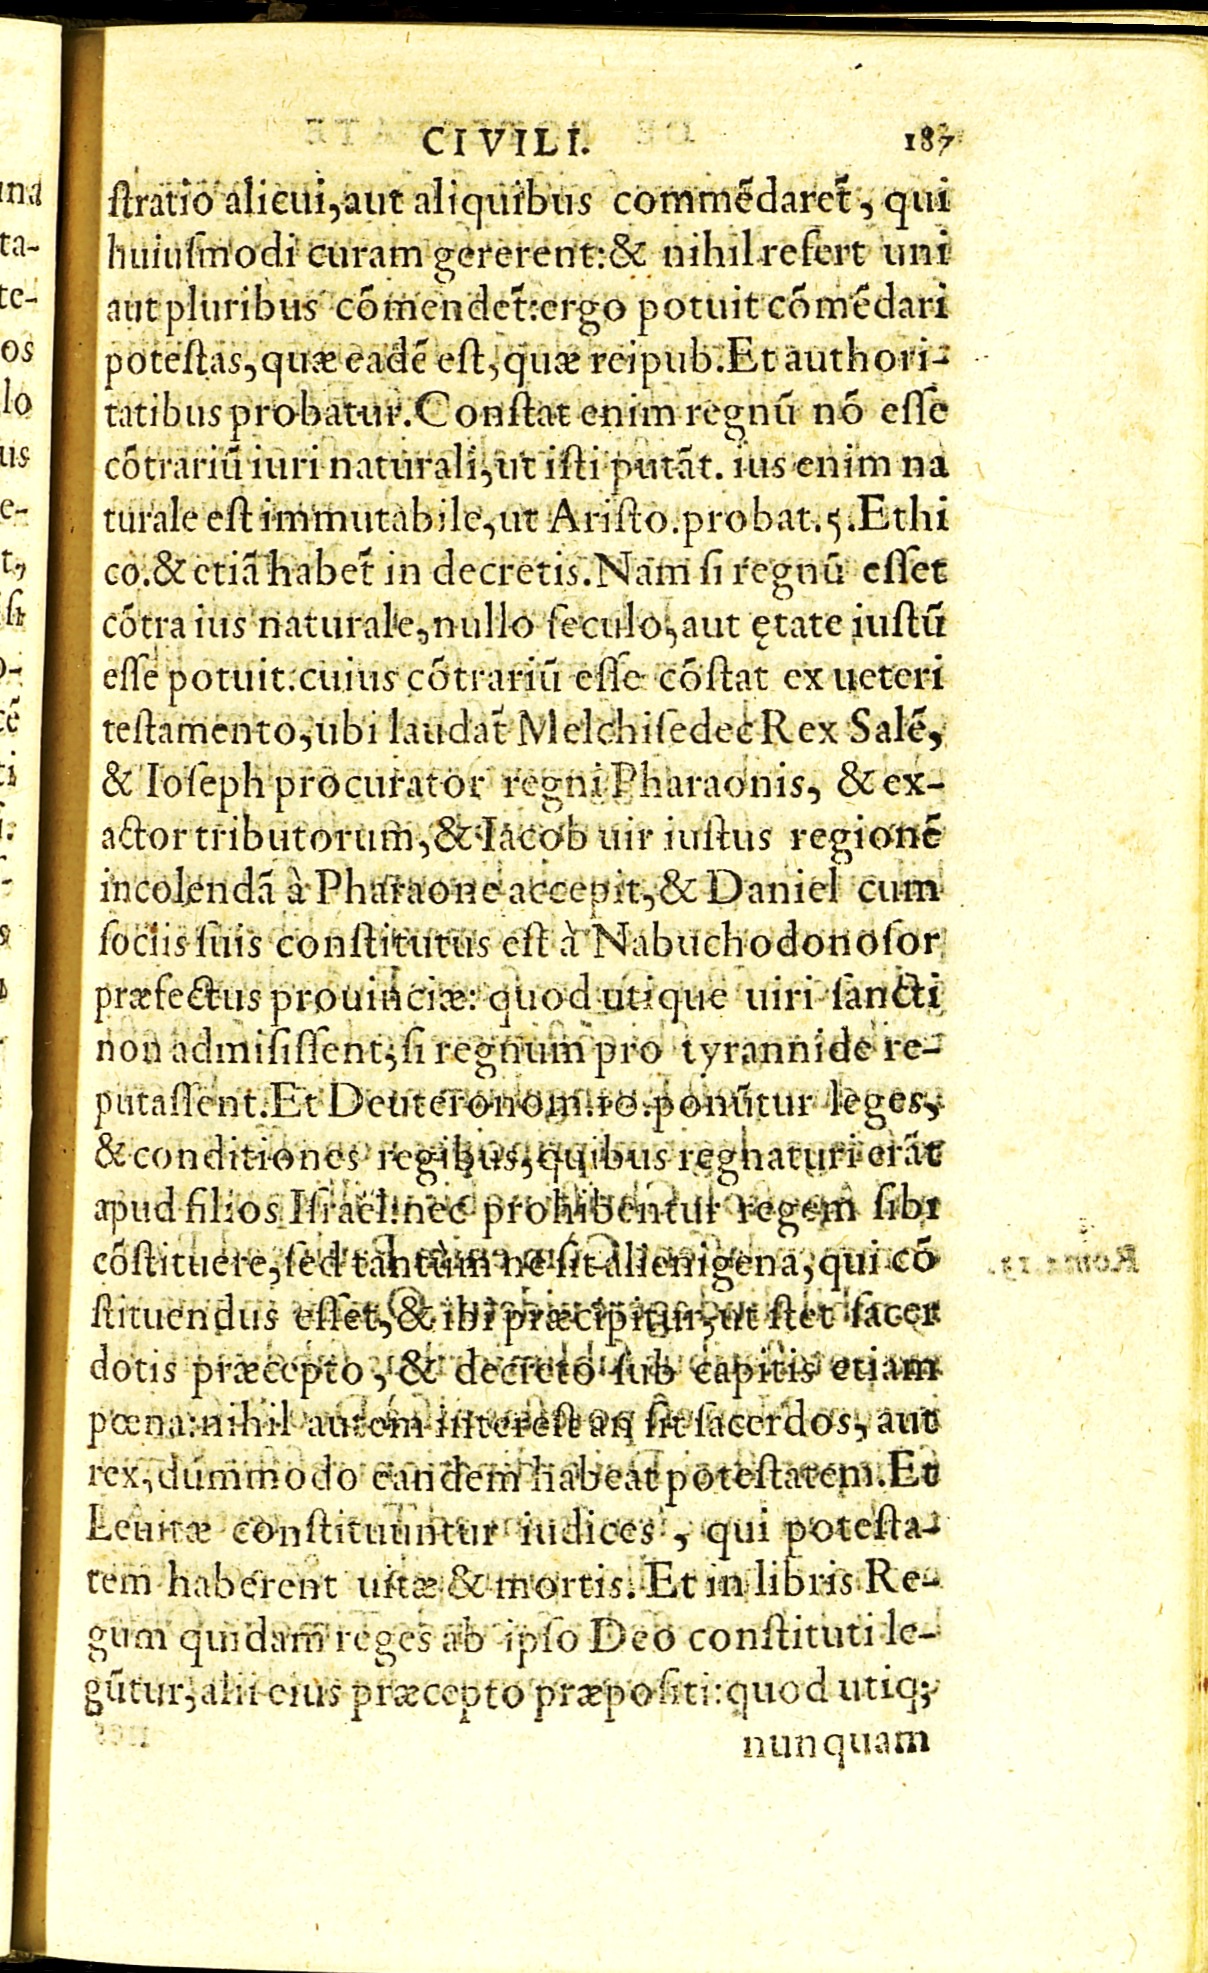 CIVILI. 187
ſtratio alicui, aut aliquibus commẽdaret̃, qui
huiuſmodi curam gererent: & nihil refert uni
aut pluribus cõmendet̃: ergo potuit cõmẽdari
poteſtas, quæ eadẽ eſt, quæ reipub. Et authori-
tatibus probatur. Conſtat enim regnũ nõ eſſe
cõtrariũ iuri naturali, ut iſti putãt. ius enim na
turale eſt immutabile, ut Ariſto. probat. 5. Ethi
co. & etiã habet̃ in decretis. Nam ſi regnũ eſſet
cõtra ius naturale, nullo ſeculo, aut ętate iuſtũ
eſſe potuit: cuius cõtrariũ eſſe cõſtat ex ueteri
teſtamento, ubi laudat̃ Melchiſedec Rex Salẽ,
& Ioſeph procurator regni Pharaonis, & ex-
actor tributorum, & Iacob uir iuſtus regionẽ
incolendã à Pharaone accepit, & Daniel cum
ſociis ſuis conſtitutus eſt à Nabuchodonoſor
præfectus prouinciæ: quod utique uiri ſancti
non admiſiſſent, ſi regnum pro tyrannide re-
putaſſent. Et Deuteronom. 10. ponũtur leges,
& conditiones regibus, quibus regnaturi erãt
apud filios Iſrael: nec prohibentur regem ſibi
cõſtituere, ſed tantùm ne ſit alienigena, qui cõ
ſtituendus eſſet, & ibi præcipitur, ut ſtet ſacer
dotis præcepto, & decreto ſub capitis etiam
pœna: nihil autem intereſt an ſit ſacerdos, aut
rex, dummodo eandem habeat poteſtatem. Et
Leuitæ conſtituuntur iudices, qui poteſta-
tem haberent uitæ & mortis. Et in libris Re-
gum quidam reges ab ipſo Deo conſtituti le-
gũtur, alii eius præcepto præpoſiti: quod utiq;
nunquam